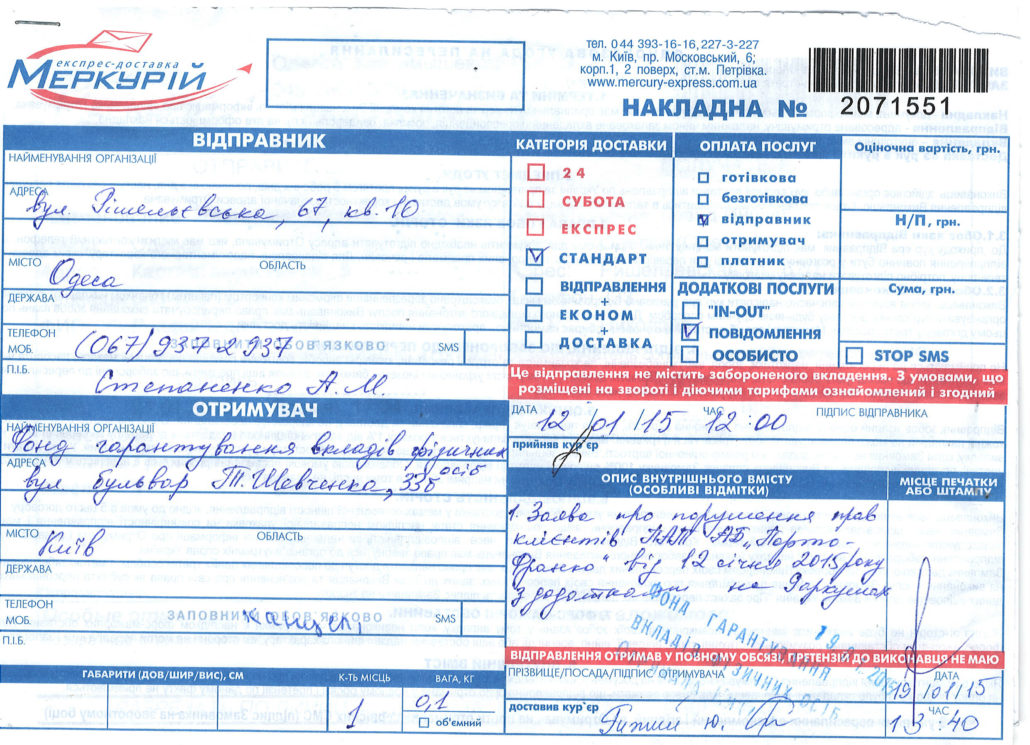 експрес-доставка
МЕРКУРІЙ
тел. 044 393-16-16, 227-3-227
м. Київ, пр. Московський, 6;
корп.1, 2 поверх, ст.м. Петрівка.
www.mercury-express.com.ua
НАКЛАДНА № 2071551
ВІДПРАВНИК
НАЙМЕНУВАННЯ ОРГАНІЗАЦІЇ
АДРЕСА
вул. Рішельєвська, 67, кв. 10
МІСТО Одеса ОБЛАСТЬ
ДЕРЖАВА
ТЕЛЕФОН
МОБ. (067) 937 2937 SMS
П.І.Б.
Степаненко А.М.
КАТЕГОРІЯ ДОСТАВКИ
24
СУБОТА
ЕКСПРЕС
СТАНДАРТ
ВІДПРАВЛЕННЯ
+
ЕКОНОМ
ДОСТАВКА
ОПЛАТА ПОСЛУГ
готівкова
безготівкова
відправник
отримувач
платник
ДОДАТКОВІ ПОСЛУГИ
"IN-OUT"
ПОВІДОМЛЕННЯ
ОСОБИСТО
Оціночна вартість, грн.
Н/П, грн.
Сума, грн.
STOP SMS
Це відправлення не містить забороненого вкладення. З умовами, що
розміщені на звороті і діючими тарифами ознайомлений і згодний
ОТРИМУВАЧ
НАЙМЕНУВАННЯ ОРГАНІЗАЦІЇ
Фонд гарантування вкладів фізичних
осіб
АДРЕСА
вул. бульвар Т. Шевченка, 33б
МІСТО Київ ОБЛАСТЬ
ДЕРЖАВА
ТЕЛЕФОН
МОБ. ЗАПОВНИТИ ОБОВ'ЯЗКОВО SMS
П.І.Б.
ГАБАРИТИ (ДОВ/ШИР/ВИС), СМ
К-ТЬ МІСЦЬ
1
ВАГА, КГ
0,1
об'ємний
ДАТА 12/01/15 ЧАС 12:00 ПІДПИС ВІДПРАВНИКА
прийняв кур'єр
ОПИС ВНУТРІШНЬОГО ВМІСТУ
(ОСОБЛИВІ ВІДМІТКИ)
МІСЦЕ ПЕЧАТКИ
АБО ШТАМПУ
1. Заява про порушення прав
клієнтів ПАТ АБ "Порто-
Франко" від 12 січня 2015 року
з додатками на 9 аркушах
ФОНД ГАРАНТУВАННЯ
ВКЛАДІВ ФІЗИЧНИХ ОСІБ
ВІДПРАВЛЕННЯ ОТРИМАВ У ПОВНОМУ ОБСЯЗІ, ПРЕТЕНЗІЙ ДО ВИКОНАВЦЯ НЕ МАЮ
ПРІЗВИЩЕ/ПОСАДА/ПІДПИС ОТРИМУВАЧА
ДАТА
19/01/15
доставив кур'єр
ЧАС
13:40